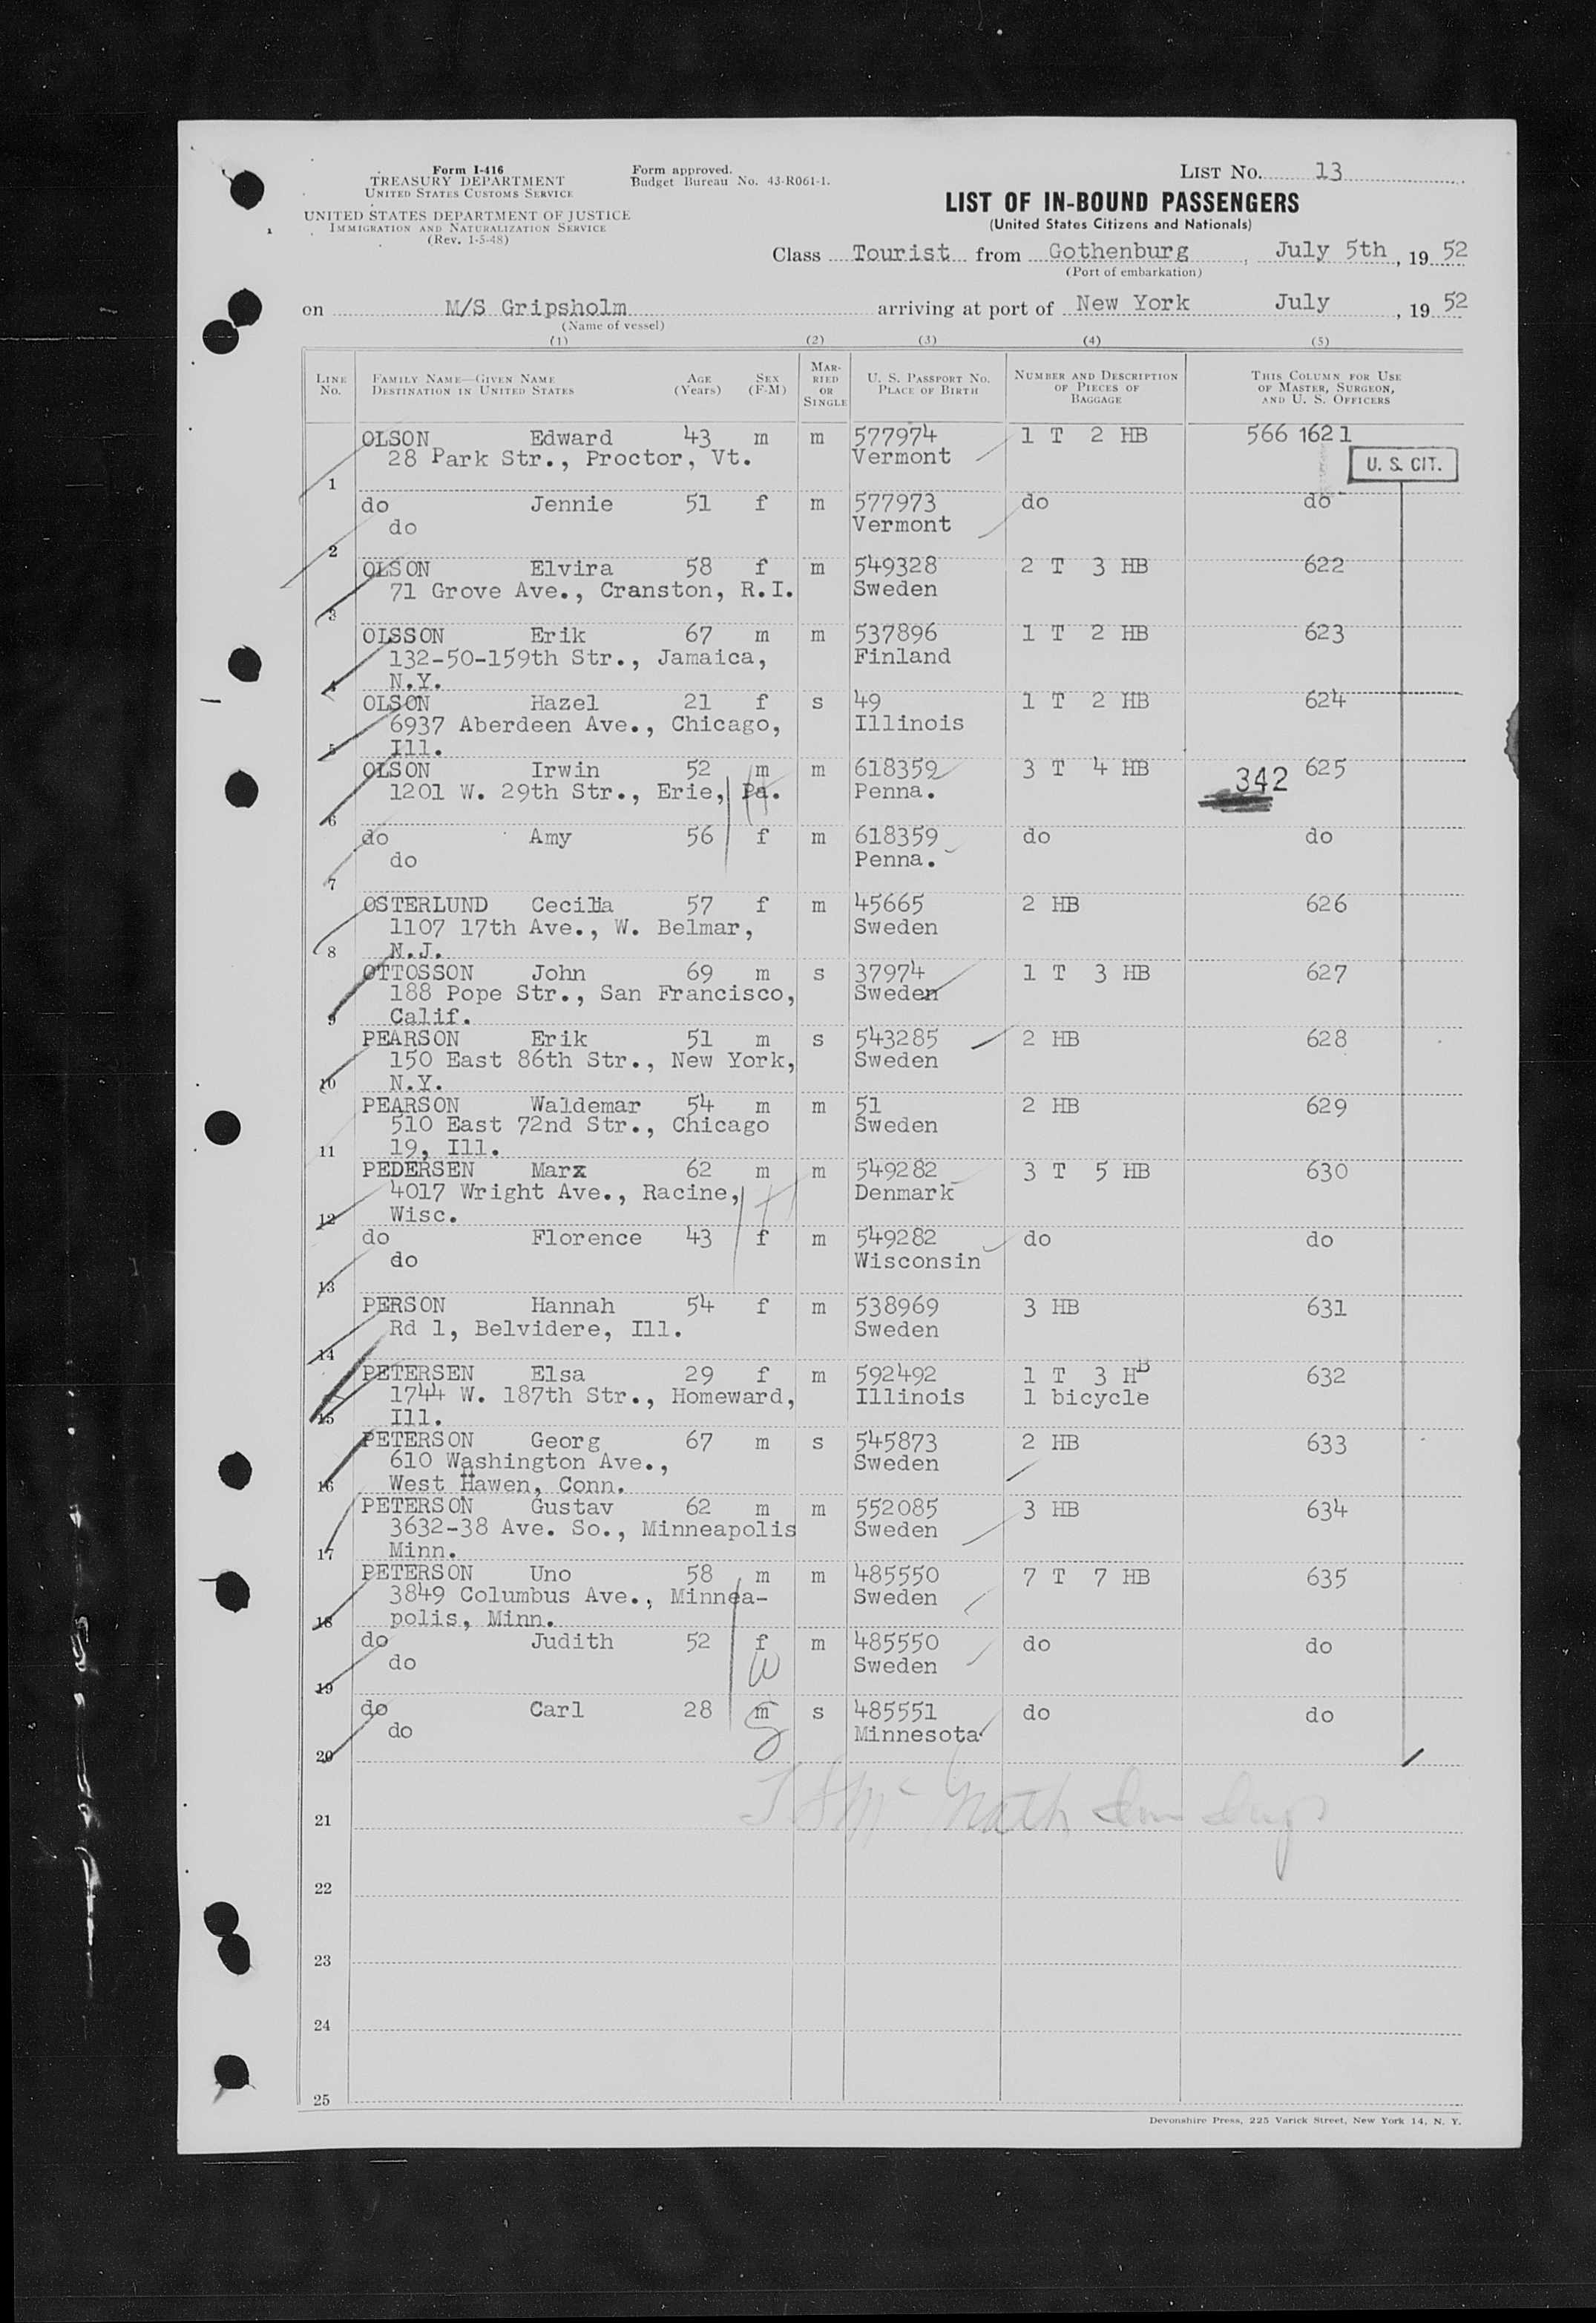 Form I-416
TREASURY DEPARTMENT
UNITED STATES CUSTOMS SERVICE
UNITED STATES DEPARTMENT OF JUSTICE
IMMIGRATION AND NATURALIZATION SERVICE
(Rev. 1-5-48)
Form approved.
Budget Bureau No. 43-R061-1.
LIST NO. 13
LIST OF IN-BOUND PASSENGERS
(United States Citizens and Nationals)
Class Tourist from Gothenburg, July 5th, 19 52
(Port of embarkation)
on M/S Gripsholm arriving at port of New York July, 19 52
(Name of vessel)
(1) (2) (3) (4) (5)
LINE NO. FAMILY NAME—GIVEN NAME DESTINATION IN UNITED STATES AGE (Years) SEX (F-M) MARRIED OR SINGLE U. S. PASSPORT NO. PLACE OF BIRTH NUMBER AND DESCRIPTION OF PIECES OF BAGGAGE THIS COLUMN FOR USE OF MASTER, SURGEON, AND U. S. OFFICERS
OLSON Edward 43 m m 577974 1 T 2 HB 566 1621
28 Park Str., Proctor, Vt. Vermont U. S. CIT.
1
do Jennie 51 f m 577973 do do
do Vermont
2
OLSON Elvira 58 f m 549328 2 T 3 HB 622
71 Grove Ave., Cranston, R.I. Sweden
3
OLSSON Erik 67 m m 537896 1 T 2 HB 623
132-50-159th Str., Jamaica, Finland
4 N.Y.
OLSON Hazel 21 f s 49 1 T 2 HB 624
6937 Aberdeen Ave., Chicago, Illinois
5 Ill.
OLSON Irwin 52 m m 618359 3 T 4 HB 625
1201 W. 29th Str., Erie, Pa. Penna. 342
6
do Amy 56 f m 618359 do do
do Penna.
7
OSTERLUND Cecilia 57 f m 45665 2 HB 626
1107 17th Ave., W. Belmar, Sweden
8 N.J.
OTTOSSON John 69 m s 37974 1 T 3 HB 627
188 Pope Str., San Francisco, Sweden
9 Calif.
PEARSON Erik 51 m s 543285 2 HB 628
150 East 86th Str., New York, Sweden
10 N.Y.
PEARSON Waldemar 54 m m 51 2 HB 629
510 East 72nd Str., Chicago Sweden
11 19, Ill.
PEDERSEN Marx 62 m m 549282 3 T 5 HB 630
4017 Wright Ave., Racine, Denmark
12 Wisc.
do Florence 43 f m 549282 do do
do Wisconsin
13
PERSON Hannah 54 f m 538969 3 HB 631
Rd 1, Belvidere, Ill. Sweden
14
PETERSEN Elsa 29 f m 592492 1 T 3 HB 632
1744 W. 187th Str., Homeward, Illinois 1 bicycle
15 Ill.
PETERSON Georg 67 m s 545873 2 HB 633
610 Washington Ave., Sweden
16 West Hawen, Conn.
PETERSON Gustav 62 m m 552085 3 HB 634
3632-38 Ave. So., Minneapolis Sweden
17 Minn.
PETERSON Uno 58 m m 485550 7 T 7 HB 635
3849 Columbus Ave., Minnea- Sweden
18 polis, Minn.
do Judith 52 f m 485550 do do
do Sweden
19 W
do Carl 28 m s 485551 do do
do S Minnesota
20
21
22
23
24
25
Devonshire Press, 225 Varick Street, New York 14, N. Y.